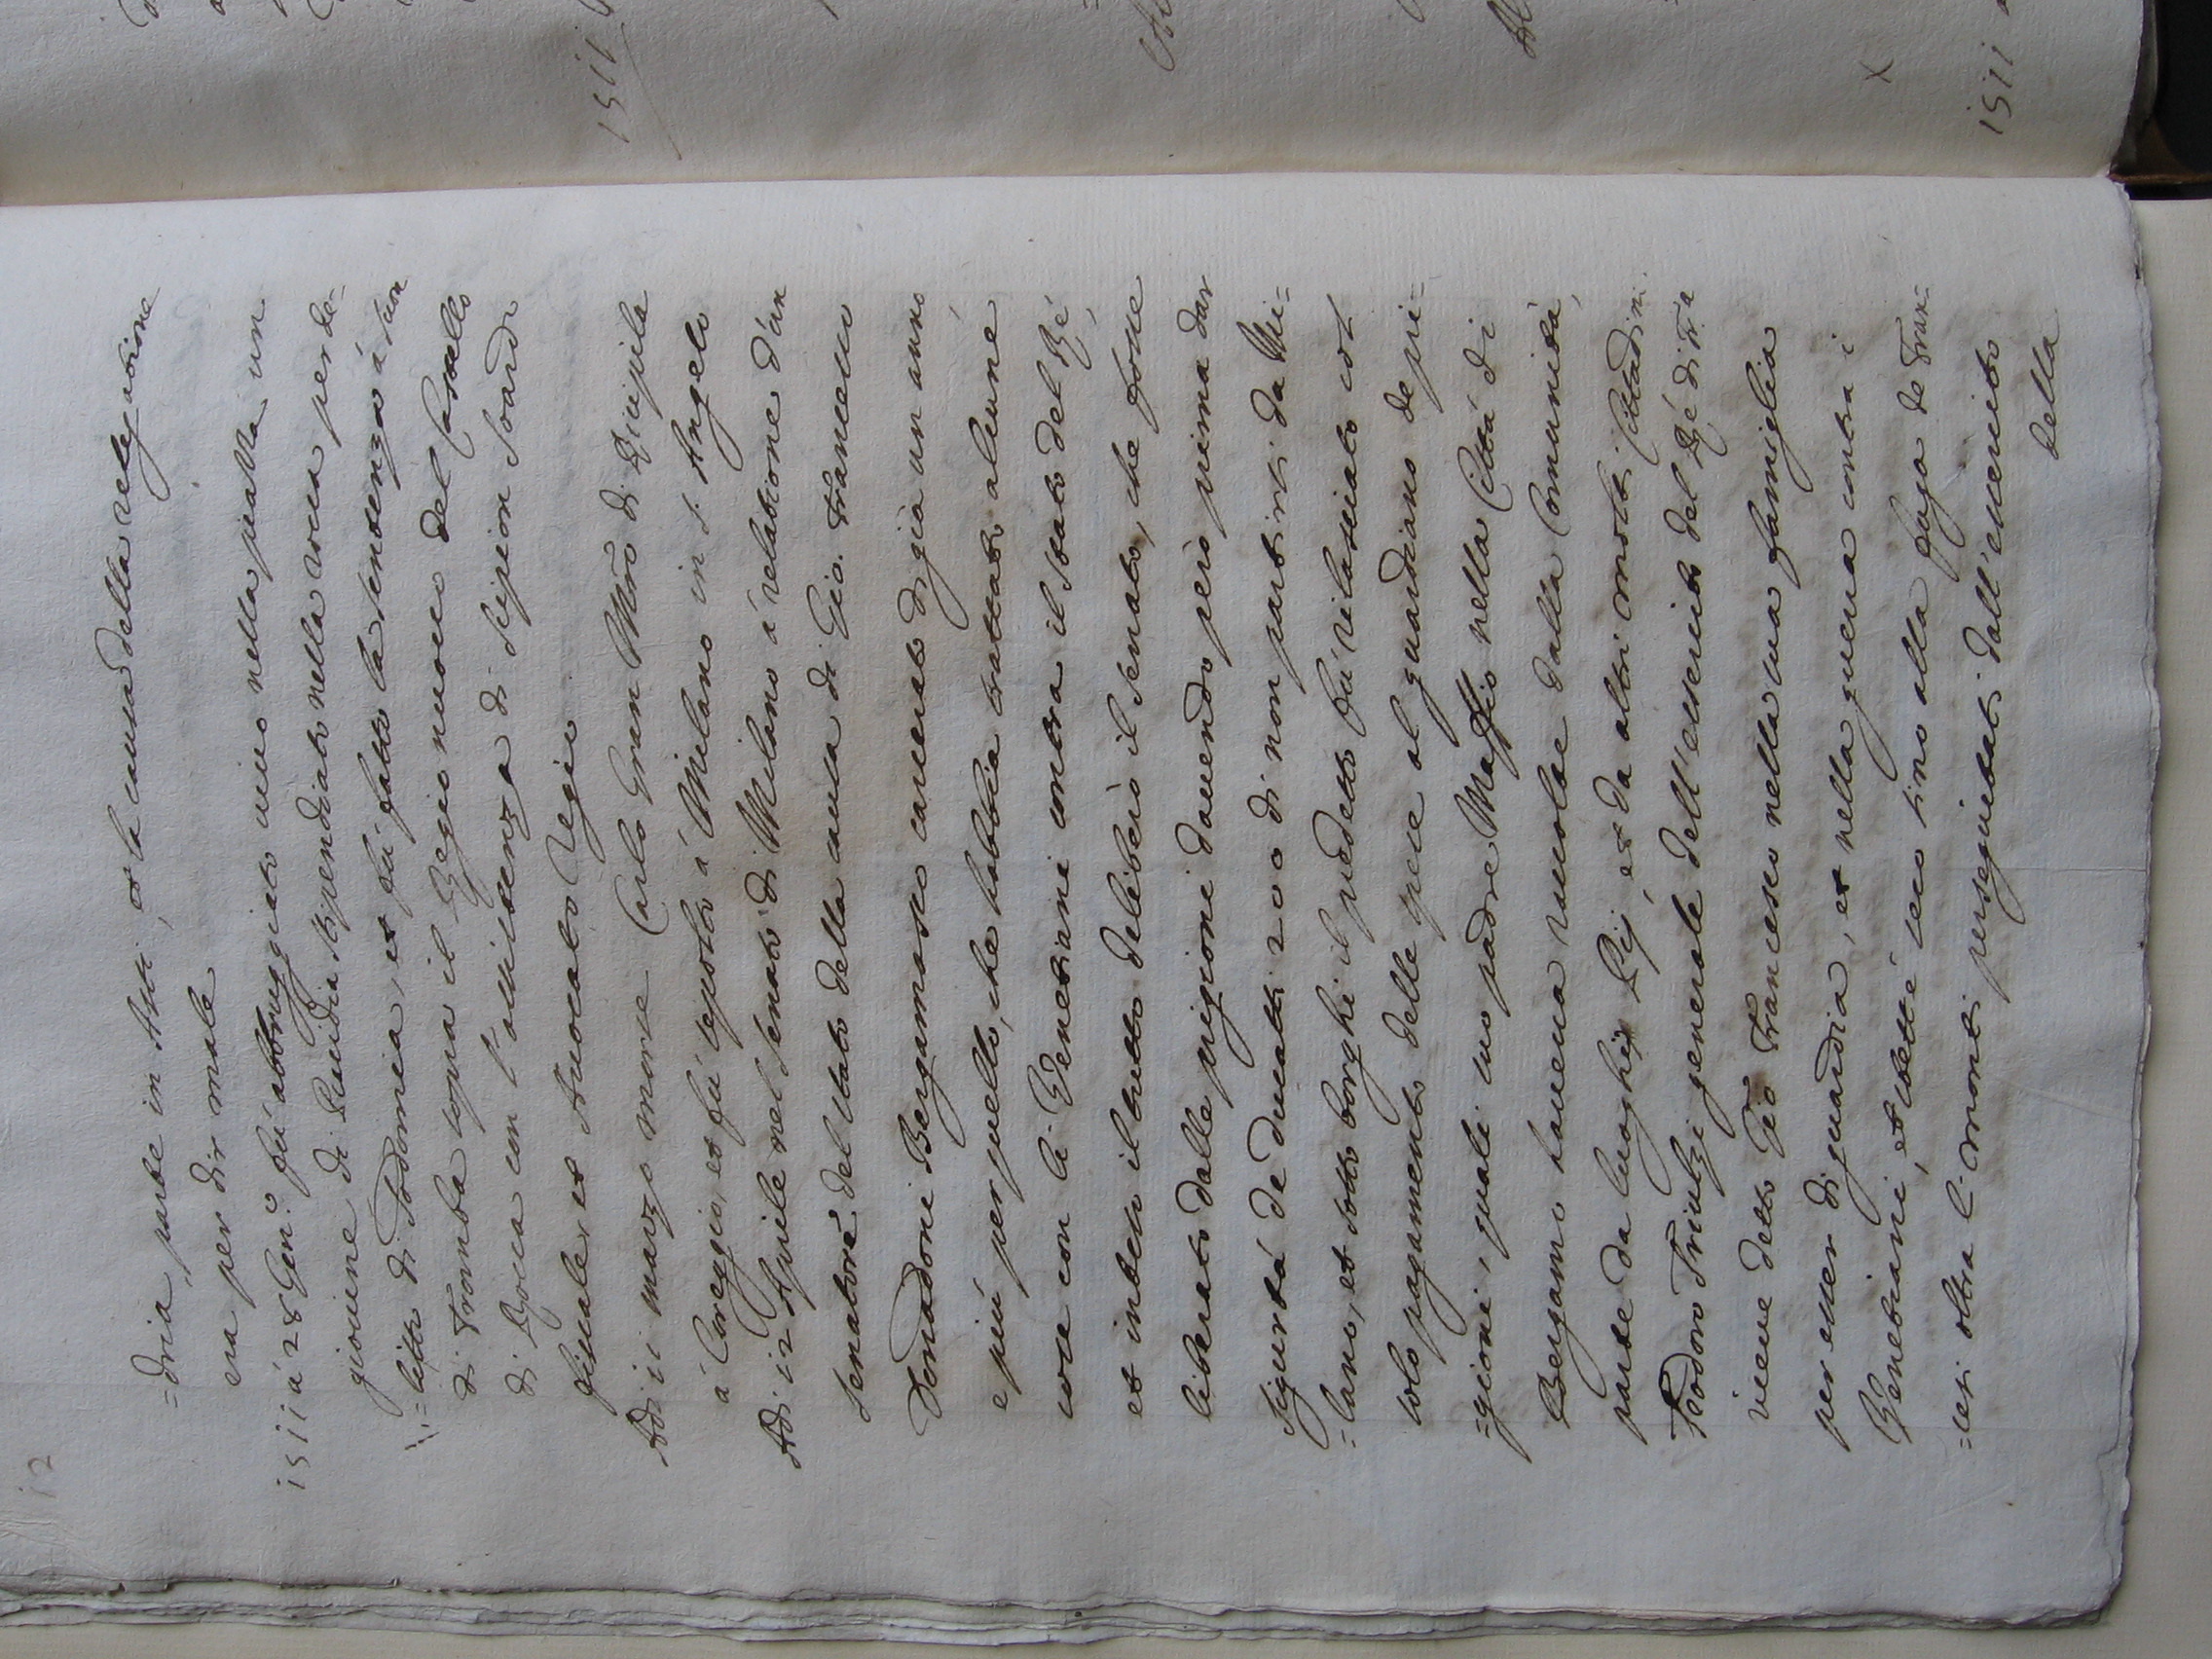 12
=dria, parte in Asti, et la causa della relegatione
era per dir male
1511 à 28 Gen.o fù abbruggiato vivo nella piazza un
giovine di Claudia stipendiato nella rocca per de=
=litto di sodomia, et fù fatta la sentenza à suon
di Tromba sopra il Regio nuovo del Castello
di Rocca con l'assistenza di Scipion Soardi
fiscale, et Avocato Regio
Adi 11 marzo morse Carlo Gran Mro di
à Coregio, et fù sepolto à Milano in S. Angelo
Adi 12 Aprile nel Senato di Milano à relatione d'un
senatore del stato della causa di Gio. Francesco
Bergamasco carcerato di già un anno
e più per quello, che habbia trattato alcune
cose con li Venetiani contra il stato del Rè,
et inteso il tutto deliberò il Senato, che fosse
liberato dalle prigione dovendo però prima dar
sigurtà de ducatti 200 di non partirsi da Mi=
=lano, et sotto borghi il predetto fù rilasciato col
solo pagamento delle spese al guardiano de pri=
=gioni, quali suo padre Maffio nella Città di
Bergamo haveva raccolte dalla Comunità,
parte da luoghi Pij, et da altri molti Cittadini.
Teodoro Triulzi generale dell'essercito del Rè di Fra
vicene detto Gio Francesco nella sua famiglia
per esser di guardia, et nella guerra contra i
Venetiani, et stette seco sino alla fuga de Fran=
=cesi oltra li monti perseguitati dall'essercito
della
1511
X
1511